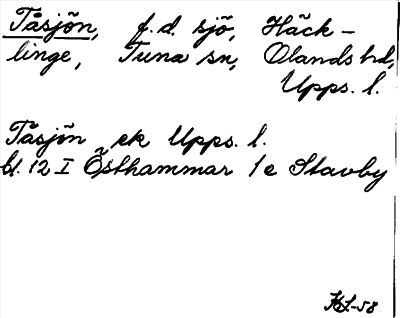 Tåsjön, f.d. sjö, Häck-
linge, Tuna sn, Olands hd,
Upps. l.
Tåsjön ek Upps. l.
bl. 12 I Östhammar 1e Stavby